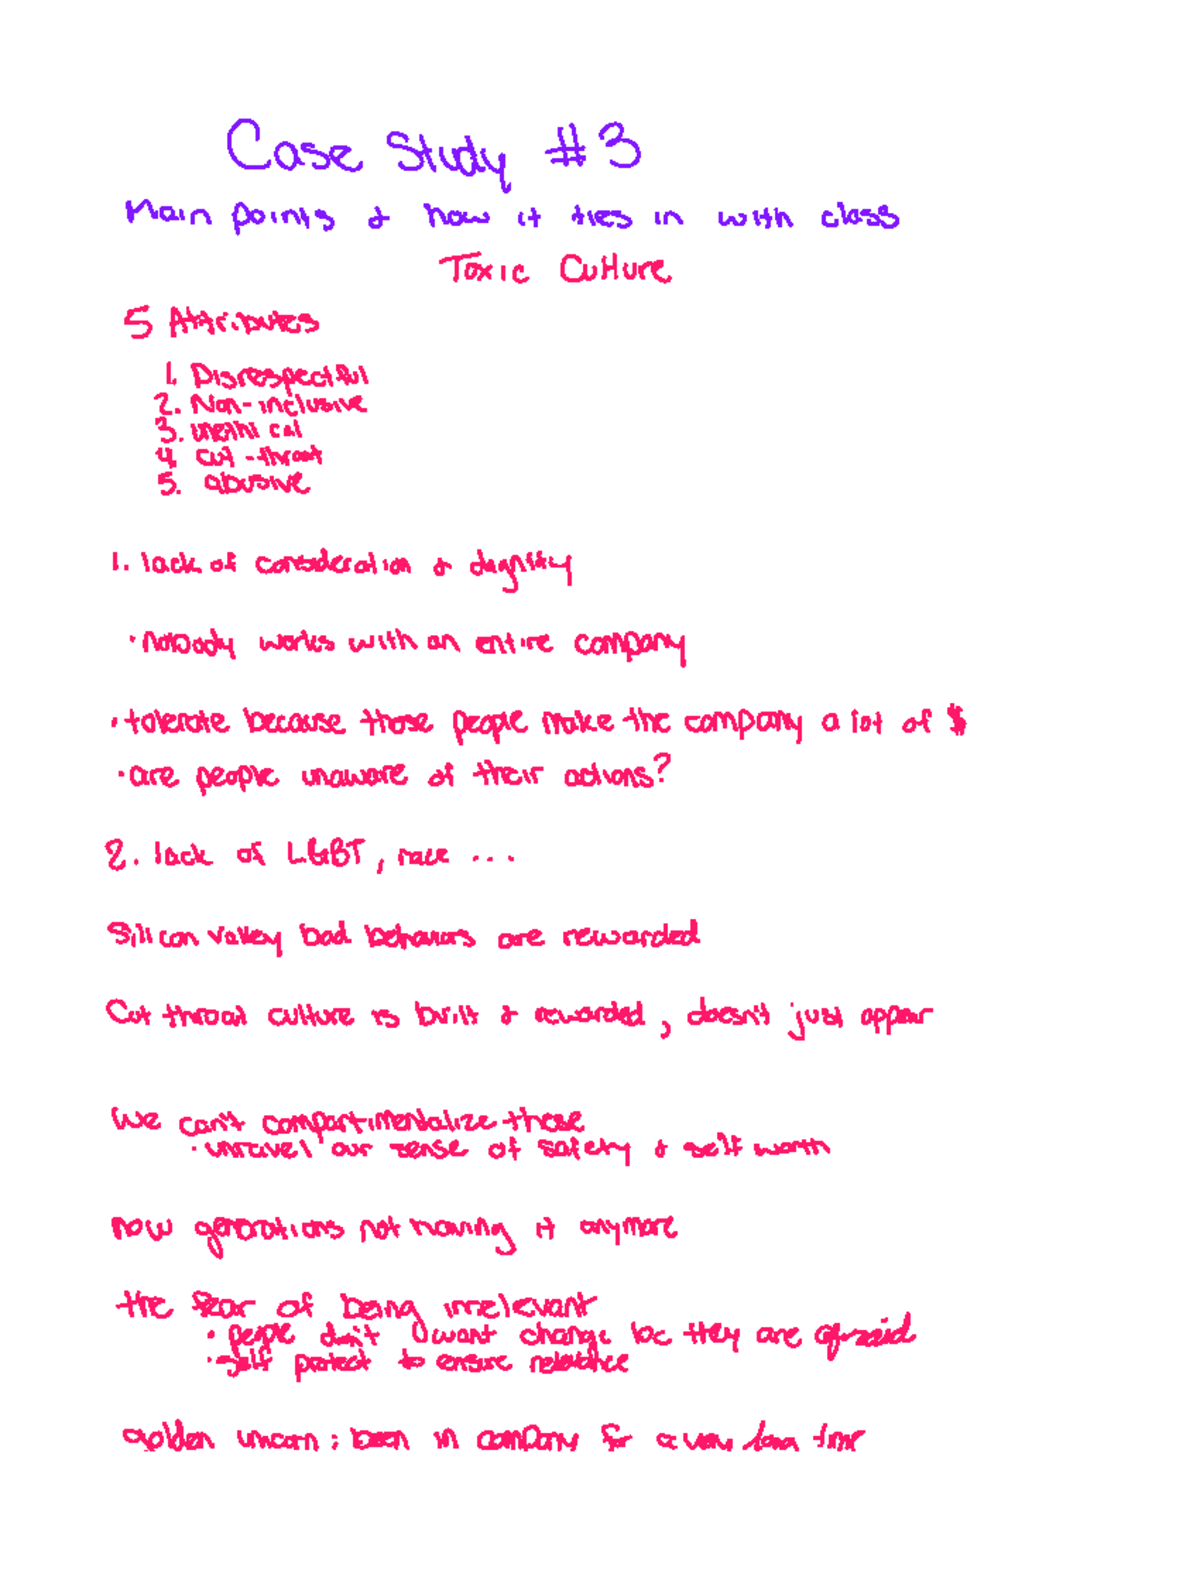 Case Study #3
Main points & how it ties in with class
Toxic Culture
5 Attributes
1. Disrespectful
2. Non-inclusive
3. unethical
4. cut-throat
5. abusive
1. lack of consideration & dignity
• nobody works with an entire company
• tolerate because those people make the company a lot of $
• are people unaware of their actions?
2. lack of LGBT, race ...
Silicon Valley bad behaviors are rewarded
Cut throat culture is built & rewarded, doesn't just appear
We can't compartimentalize these
• unravel our sense of safety & self worth
now generations not having it anymore
the fear of being irrelevant
• people don't want change bc they are afraid
• self protect to ensure
golden unicorn: been in company for a very long time